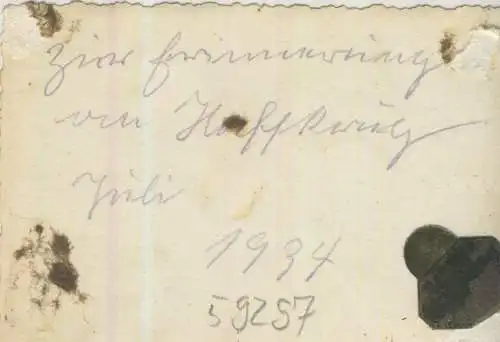 Zur Erinnerung
an Haffkrug
Juli
1934
59257